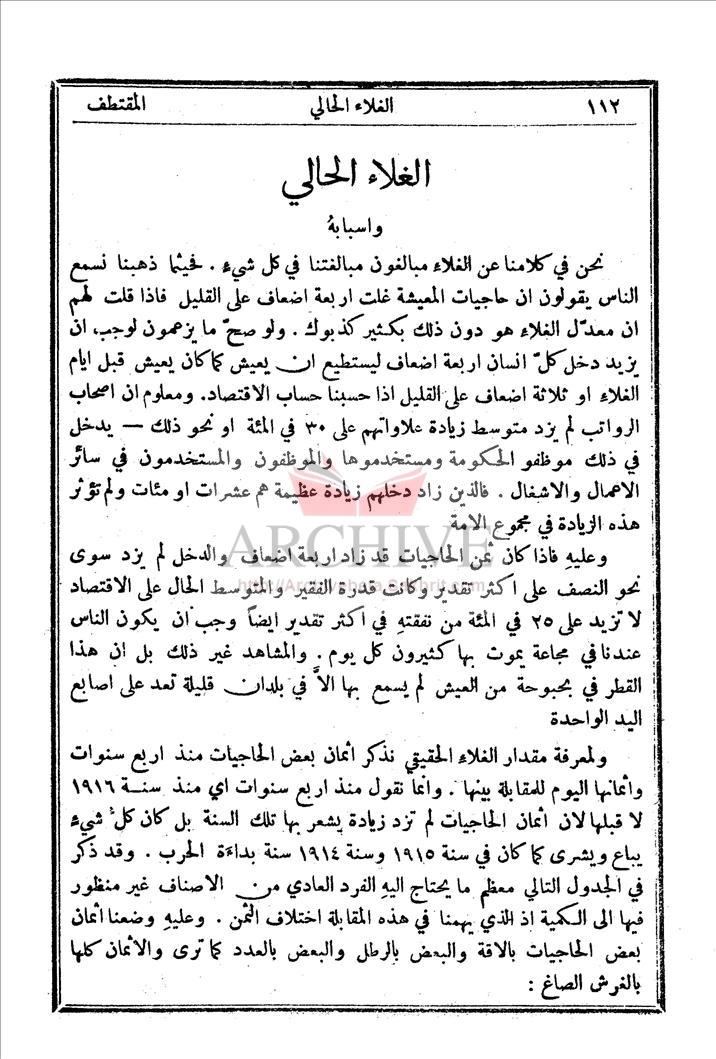 ١١٢ الغلاء الحالي المقتطف
الغلاء الحالي
واسبابهُ
نحن في كلامنا عن الغلاء مبالغون مبالغتنا في كل شيءٍ . فحيثما ذهبنا نسمع
الناس يقولون ان حاجيات المعيشة غلت اربعة اضعاف على القليل فاذا قلت لهم
ان معدّل الغلاء هو دون ذلك بكثير كذبوك . ولو صحّ ما يزعمون لوجب ان
يزيد دخل كلّ انسان اربعة اضعاف ليستطيع ان يعيش كما كان يعيش قبل ايام
الغلاء او ثلاثة اضعاف على القليل اذا حسبنا حساب الاقتصاد. ومعلوم ان اصحاب
الرواتب لم يزد متوسط زيادة علاواتهم على ٣٠ في المئة او نحو ذلك — يدخل
في ذلك موظفو الحكومة ومستخدموها والموظفون والمستخدمون في سائر
الاعمال والاشغال . فالذين زاد دخلهم زيادة عظيمة هم عشرات او مئات ولم تؤثر
هذه الزيادة في مجموع الامة
ARCHIVE
وعليهِ فاذا كان ثمن الحاجيات قد زاد اربعة اضعاف والدخل لم يزد سوى
نحو النصف على اكثر تقدير وكانت قدرة الفقير والمتوسط الحال على الاقتصاد
لا تزيد على ٢٥ في المئة من نفقتهِ في اكثر تقدير ايضاً وجب ان يكون الناس
عندنا في مجاعة يموت بها كثيرون كل يوم . والمشاهد غير ذلك بل ان هذا
القطر في بحبوحة من العيش لم يسمع بها الاَّ في بلدان قليلة تعد على اصابع
اليد الواحدة
ولمعرفة مقدار الغلاء الحقيقي نذكر أثمان بعض الحاجيات منذ اربع سنوات
وأثمانها اليوم للمقابلة بينها . وانما نقول منذ اربع سنوات اي منذ سنة ١٩١٦
لا قبلها لان أثمان الحاجيات لم تزد زيادة يشعر بها تلك السنة بل كان كلُّ شيءٍ
يباع ويشرى كما كان في سنة ١٩١٥ وسنة ١٩١٤ سنة بداءة الحرب . وقد ذكر
في الجدول التالي معظم ما يحتاج اليهِ الفرد العادي من الاصناف غير منظور
فيها الى الكمية اذ الذي يهمنا في هذه المقابلة اختلاف الثمن . وعليهِ وضعنا أثمان
بعض الحاجيات بالاقة والبعض بالرطل والبعض بالعدد كما ترى والأثمان كلها
بالغرش الصاغ :